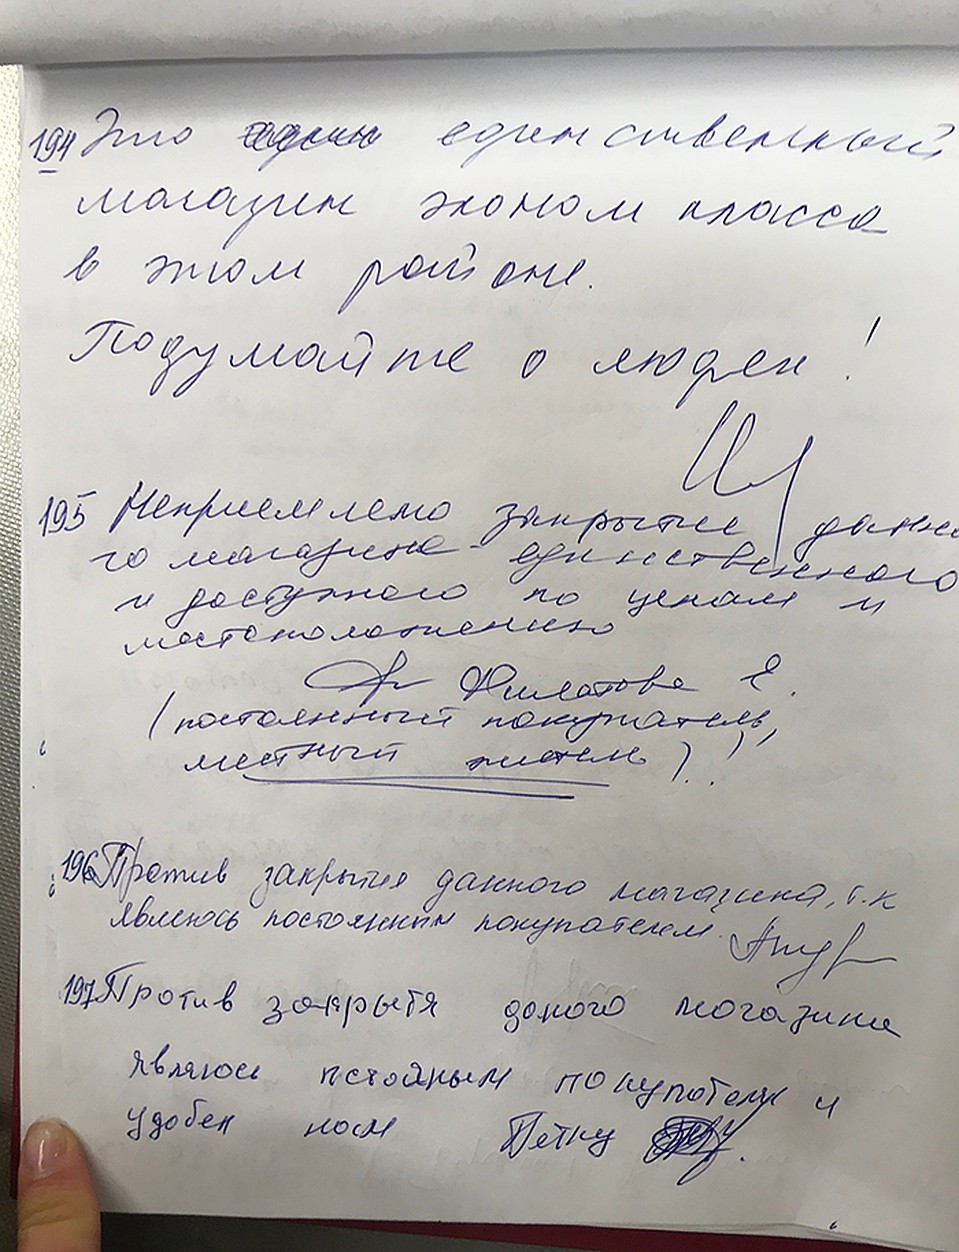 194 Это единственный
магазин эконом класса
в этом районе.
Подумайте о людях!
195 Неприемлемо закрытие данно
го магазина - единственного
и доступного по ценам и
местоположению
Филатова Е.
(постоянный покупатель,
местный житель)!
196 Против закрытия данного магазина, т.к
являюсь постоянным покупателем.
197 Против закрытя даного магазина
являюсь пстояным покупателм и
удобен нам